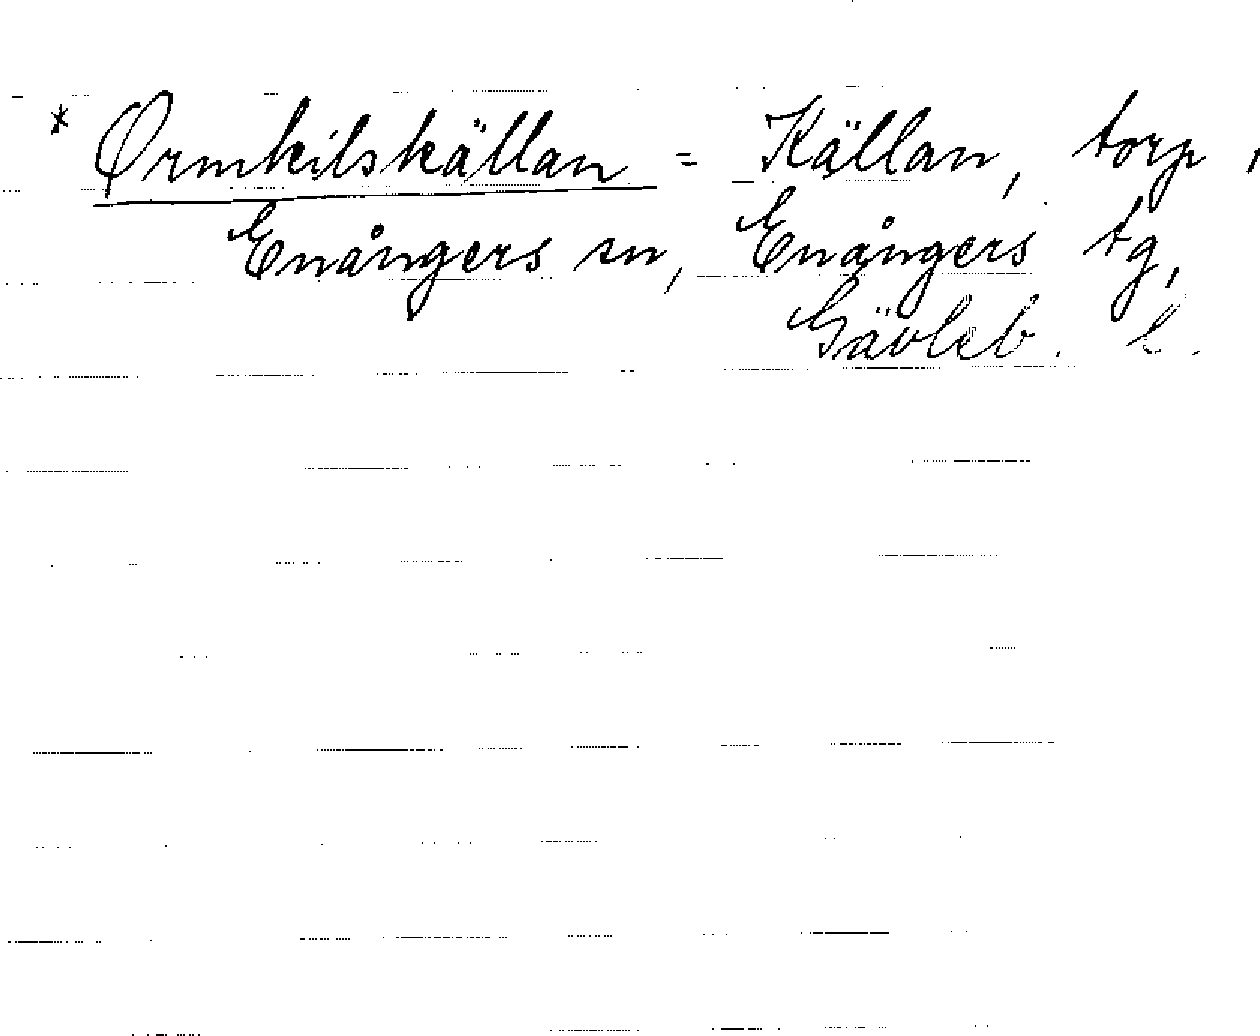 * Ørmkilskällan = Källan, torp i
Enångers sn, Enångers tg,
Gävleb. l.